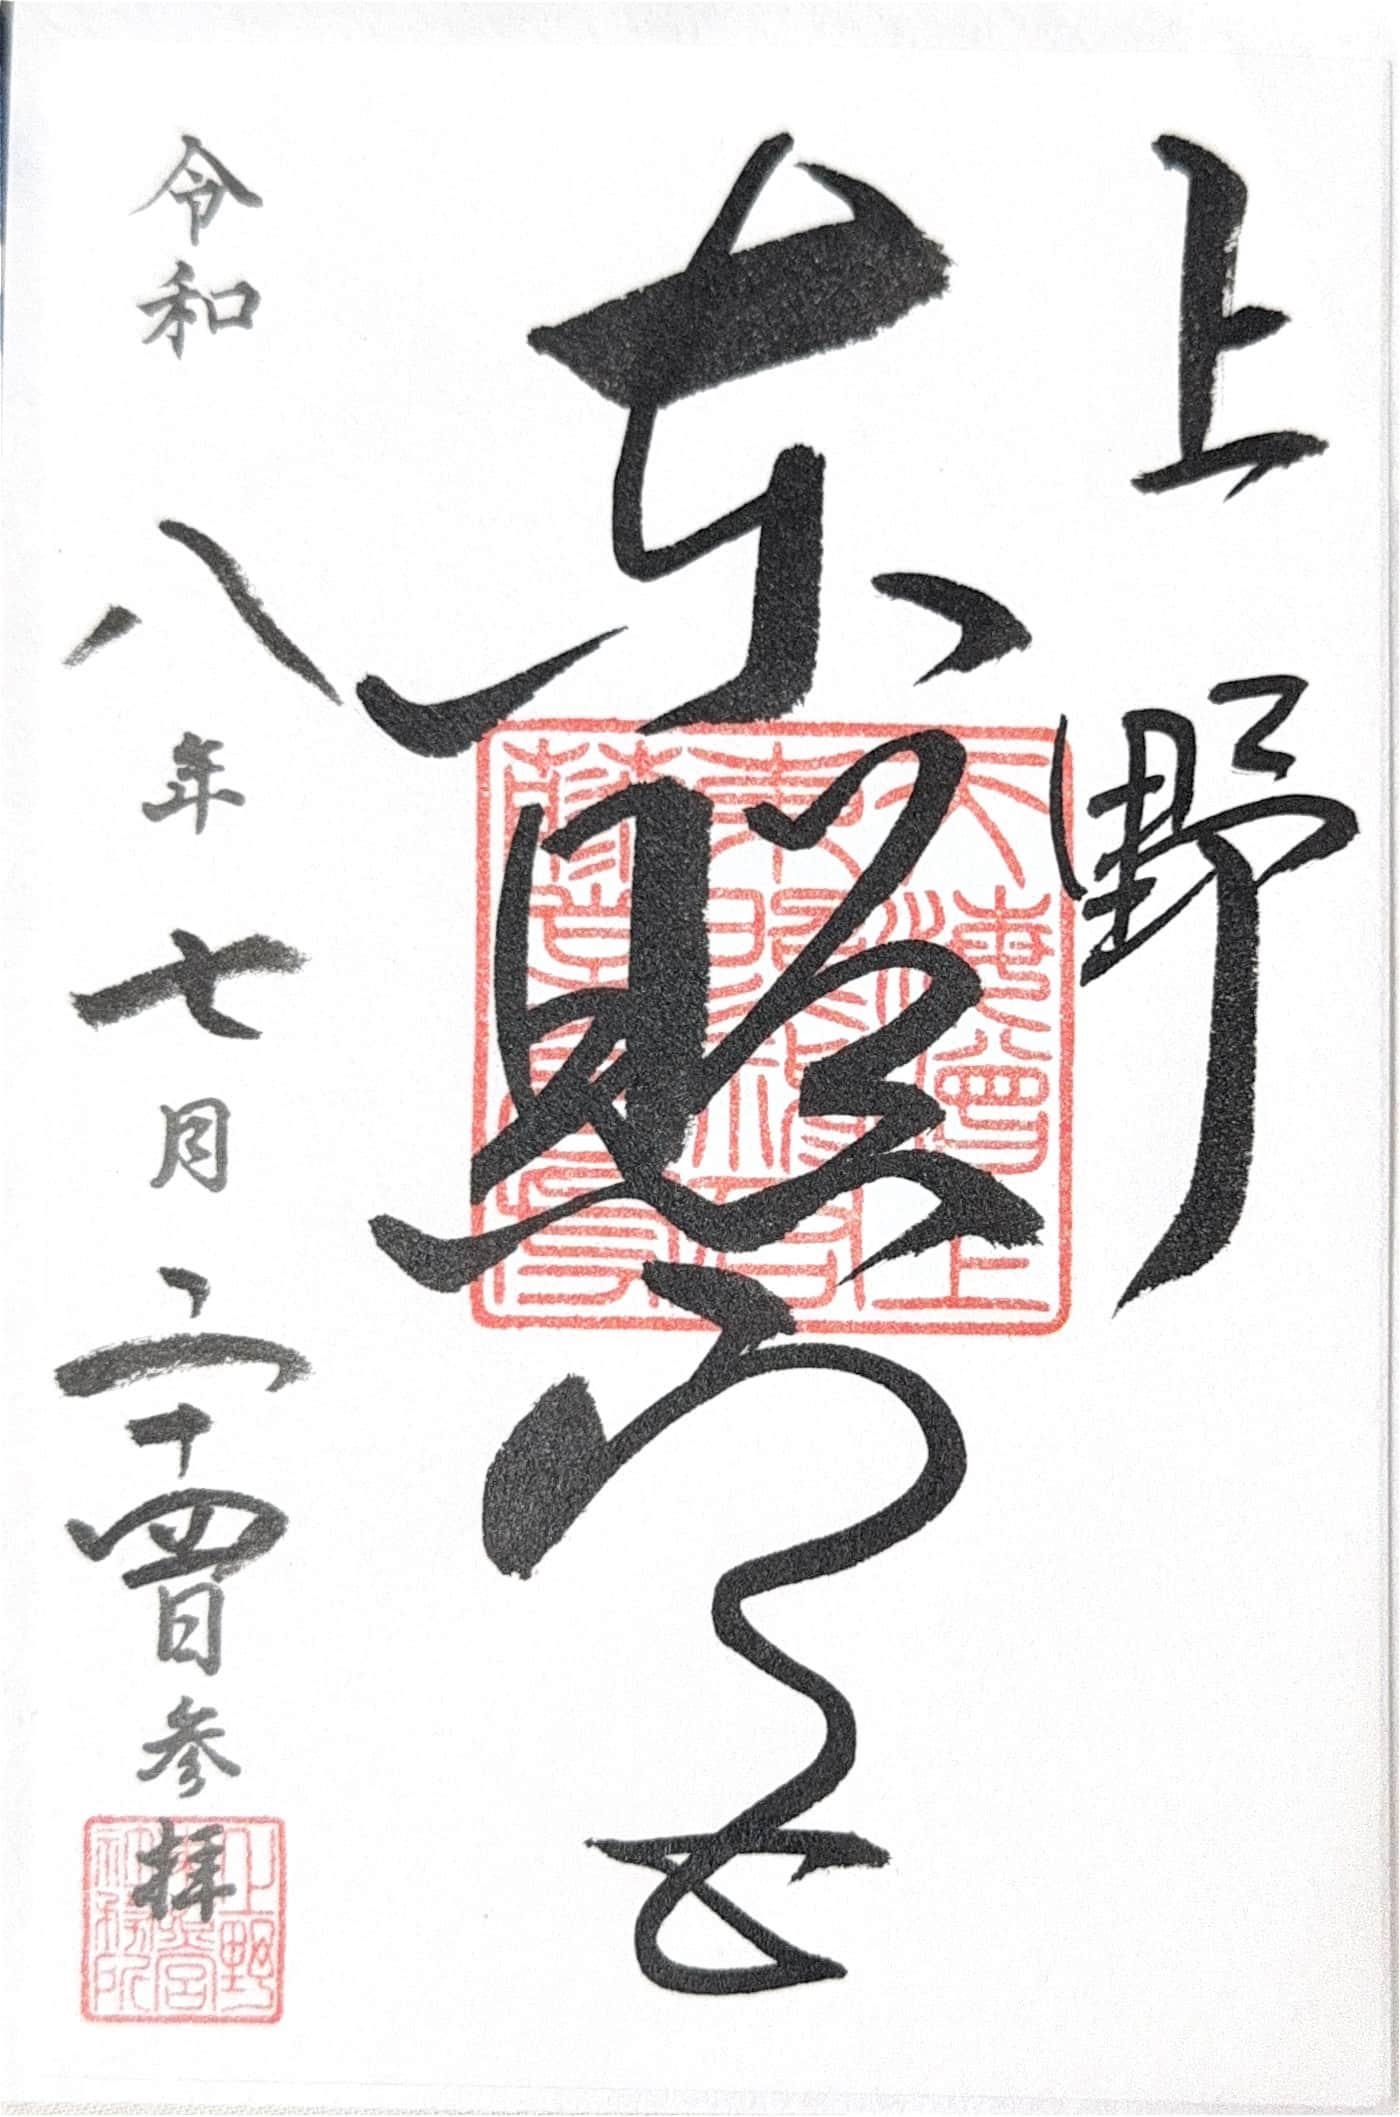 上野
東照宮
令和八年七月二十四日参拝
上野
東照宮
社務所